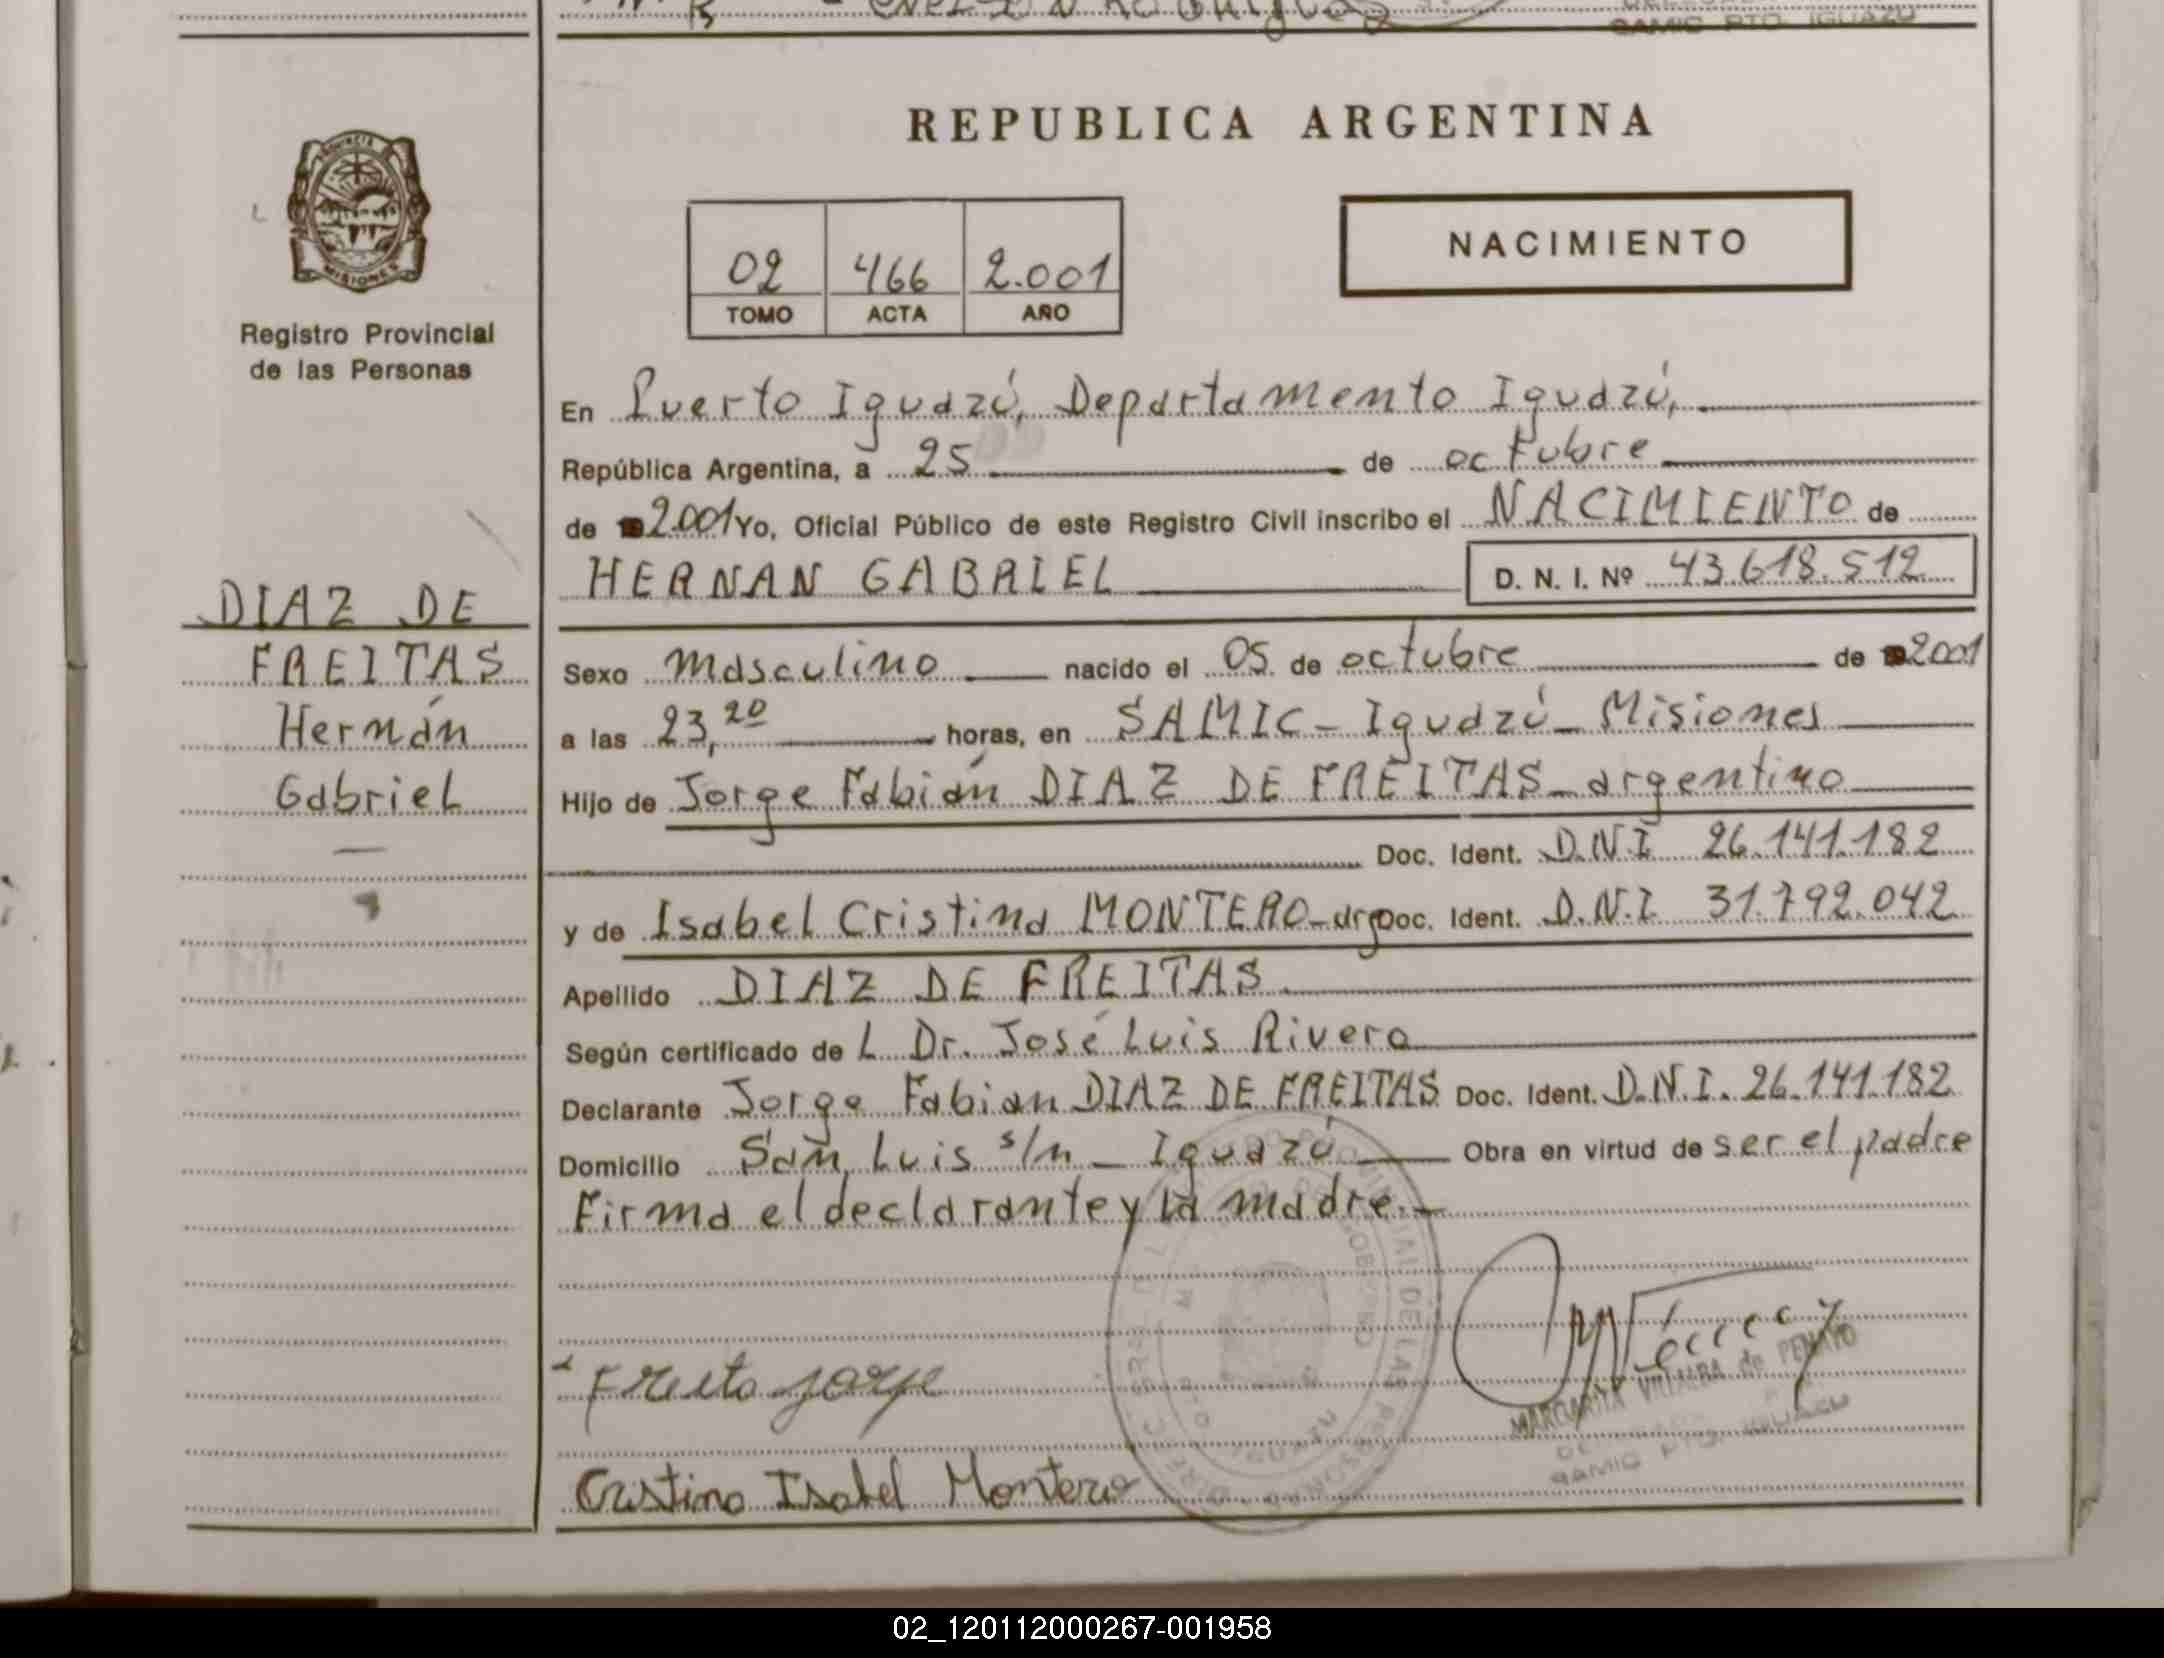 SAMIC PTO. IGUAZU
REPUBLICA ARGENTINA
PROVINCIA DE
MISIONES
Registro Provincial
de las Personas
02 466 2.001
TOMO ACTA AÑO
NACIMIENTO
En Puerto Iguazú, Departamento Iguazú,
República Argentina, a 25 de octubre
de 2.001 Yo, Oficial Público de este Registro Civil inscribo el NACIMIENTO de
HERNAN GABRIEL D. N. I. Nº 43.618.512
DIAZ DE
FREITAS
Hernán
Gabriel
Sexo masculino nacido el 05 de octubre de 2001
a las 23,20 horas, en SAMIC - Iguazú - Misiones
Hijo de Jorge Fabián DIAZ DE FREITAS - argentino
Doc. Ident. D.N.I 26.141.182
y de Isabel Cristina MONTERO - arg Doc. Ident. D.N.I 31.792.042
Apellido DIAZ DE FREITAS
Según certificado de L Dr. José Luis Rivero
Declarante Jorge Fabian DIAZ DE FREITAS Doc. Ident. D.N.I. 26.141.182
Domicilio San Luis s/n - Iguazú Obra en virtud de ser el padre
Firma el declarante y la madre.-
Freita Jorge
MARGARITA VILLALBA de PENAYO
SAMIC PTO. IGUAZU
Cristina Isabel Montero
02_120112000267-001958